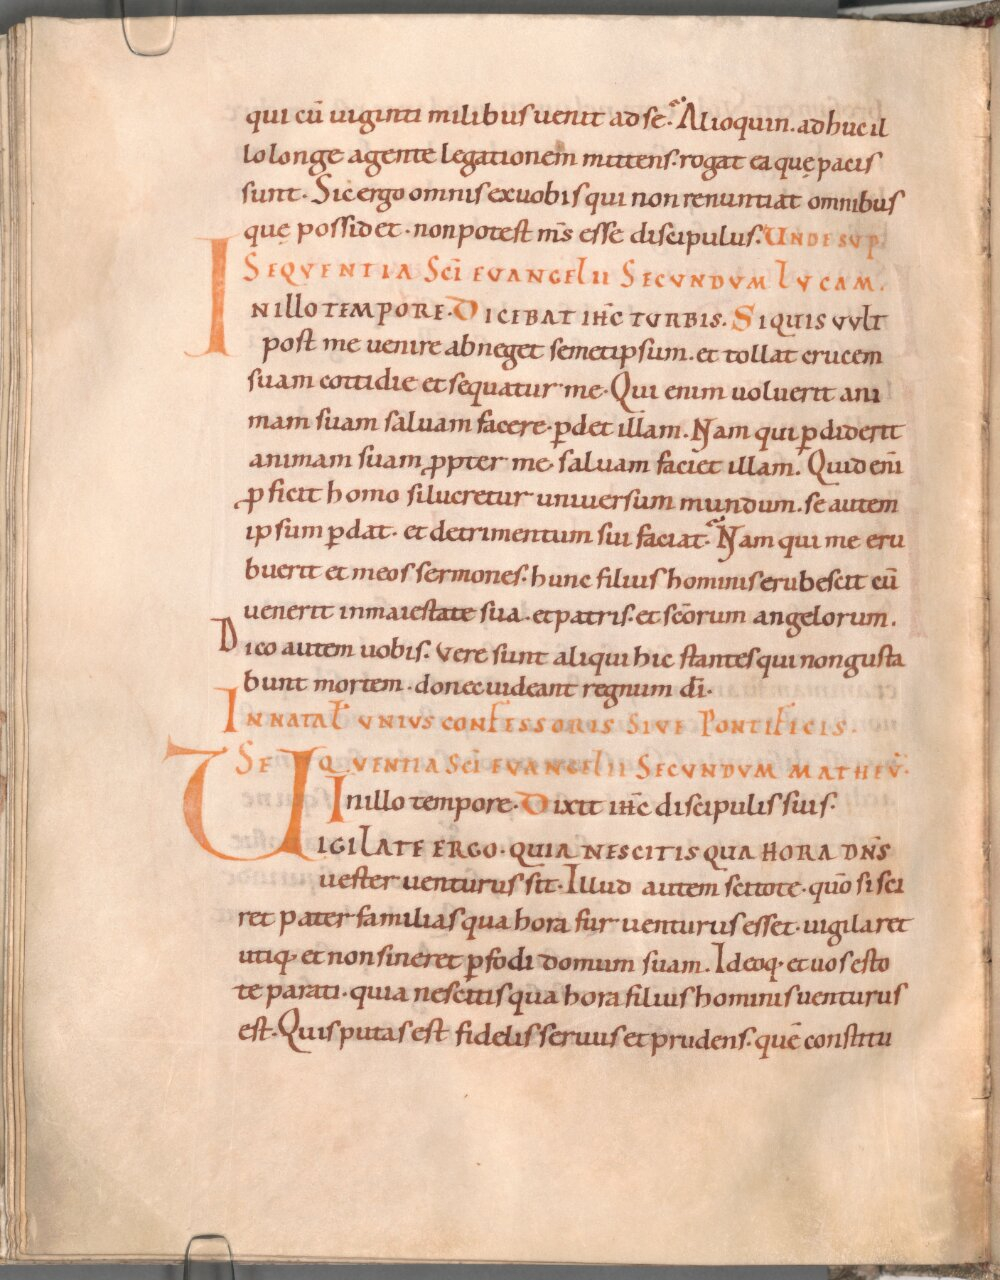 qui cū uiginti milibus uenit ad se. Alioquin. adhuc il
lo longe agente legationem mittens. rogat ea quę pacis
sunt. Sic ergo omnis ex uobis qui non renuntiat omnibus
quę possidet. non potest m̄s esse discipulus. UNDE SUP.
SEQUENTIA SC̄I EUANGELII SECUNDUM LUCAM.
IN ILLO TEMPORE. DICEBAT IH̄C TURBIS. SI QUIS UULT
post me uenire abneget semetipsum. et tollat crucem
suam cottidie et sequatur me. Qui enim uoluerit ani
mam suam saluam facere. ꝑdet illam. Nam qui ꝑdiderit
animam suam ꝓpter me. saluam faciet illam. Quid eni̅
ꝓficit homo si lucretur uniuersum mundum. se autem
ipsum ꝑdat. et detrimentum sui faciat. Nam qui me eru
buerit et meos sermones. hunc filius hominis erubescit cū
uenerit in maiestate sua. et patris. et sc̄orum angelorum.
Dico autem uobis. Vere sunt aliqui hic stantes qui non gusta
bunt mortem. donec uideant regnum dī.
IN NATAŁ UNIUS CONFESSORIS SIVE PONTIFICIS.
SEQUENTIA SC̄I EUANGELII SECUNDUM MATHEŪ.
In illo tempore. Dixit ih̄c discipulis suis.
UIGILATE ERGO. QUIA NESCITIS QUA HORA DN̄S
uester uenturus sit. Illud autem scitote. quō si sci
ret pater familias qua hora fur uenturus esset. uigilaret
utiq. et non sineret ꝑfodi domum suam. Ideoq. et uos esto
te parati. quia nescitis qua hora filius hominis uenturus
est. Quis putas est fidelis seruus et prudens. quē constitu